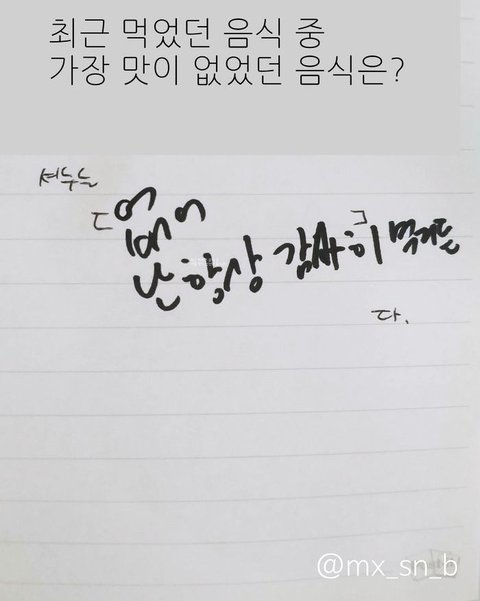 최근 먹었던 음식 중
가장 맛이 없었던 음식은?
셔누는
[ 없어
난 항상 감사히 ] 먹거든
다.
@mx_sn_b